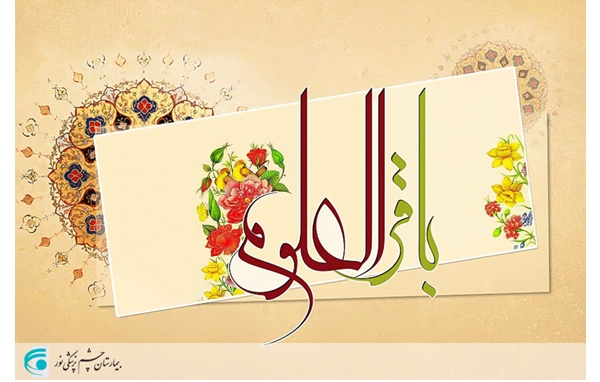 باقر العلوم
بیمارستان چشم پزشکی نور